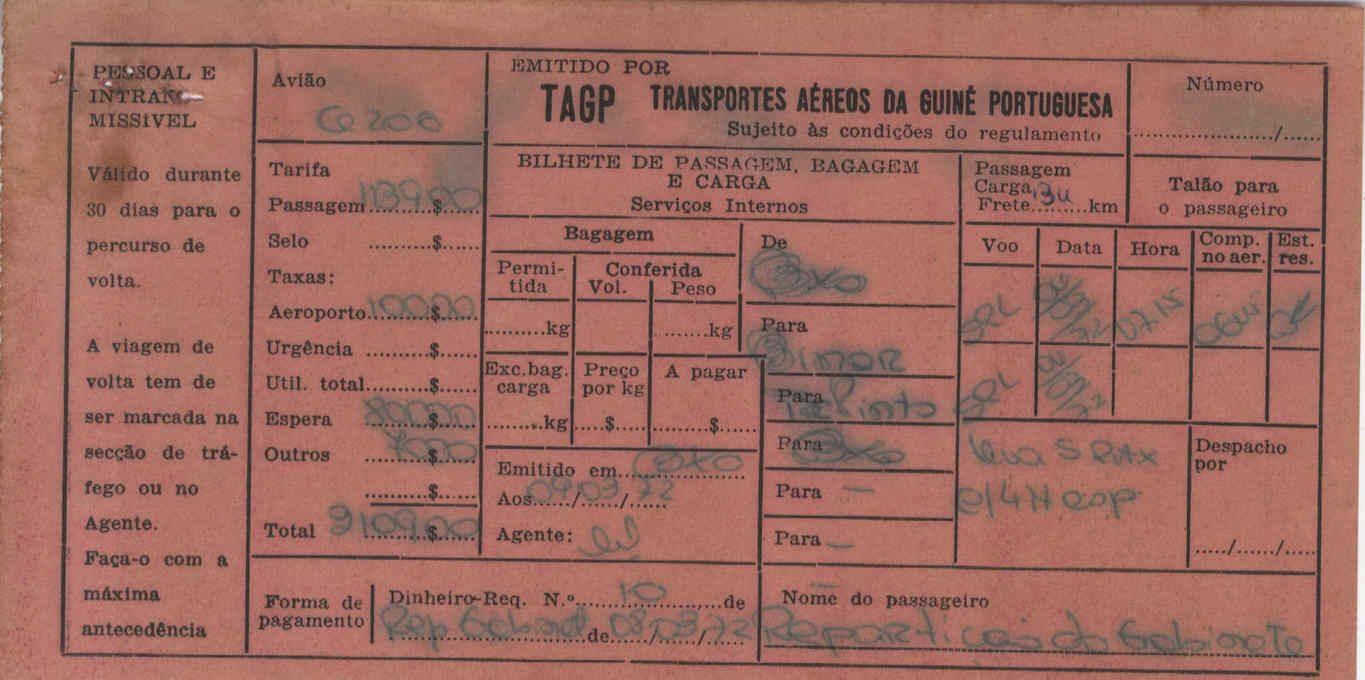 PESSOAL E
INTRANS-
MISSÍVEL
Válido durante
30 dias para o
percurso de
volta.
A viagem de
volta tem de
ser marcada na
secção de trá-
fego ou no
Agente.
Faça-o com a
máxima
antecedência
Avião
200
Tarifa
Passagem 1139$00
Selo ..........$......
Taxas:
Aeroporto 100$00
Urgência ..........$......
Util. total..........$......
Espera 800$00
Outros 70$00
..........$......
Total
Forma de
pagamento
Dinheiro-Req. N.º 10 de
Rep Gabinete de 08/03/72
EMITIDO POR
TAGP TRANSPORTES AÉREOS DA GUINÉ PORTUGUESA
Sujeito às condições do regulamento
BILHETE DE PASSAGEM, BAGAGEM
E CARGA
Serviços Internos
Bagagem
Permi-
tida
Conferida
Vol. Peso
..........kg
........kg
Exc.bag.
carga
Preço
por kg
A pagar
.........kg
....$.....
.........$......
Emitido em BXO
Aos 09/03/72
Agente:
De
BXO
Para
Bimor
Para
Para BXO
Para —
Para —
Nome do passageiro
Repartição do Gabinete
Número
....................../......
Passagem
Carga
Frete km
Talão para
o passageiro
Voo Data Hora Comp.
no aer. Est.
res.
SPL 07 15 OK
SPL
c/4H esp.
Despacho
por
...../....../.....